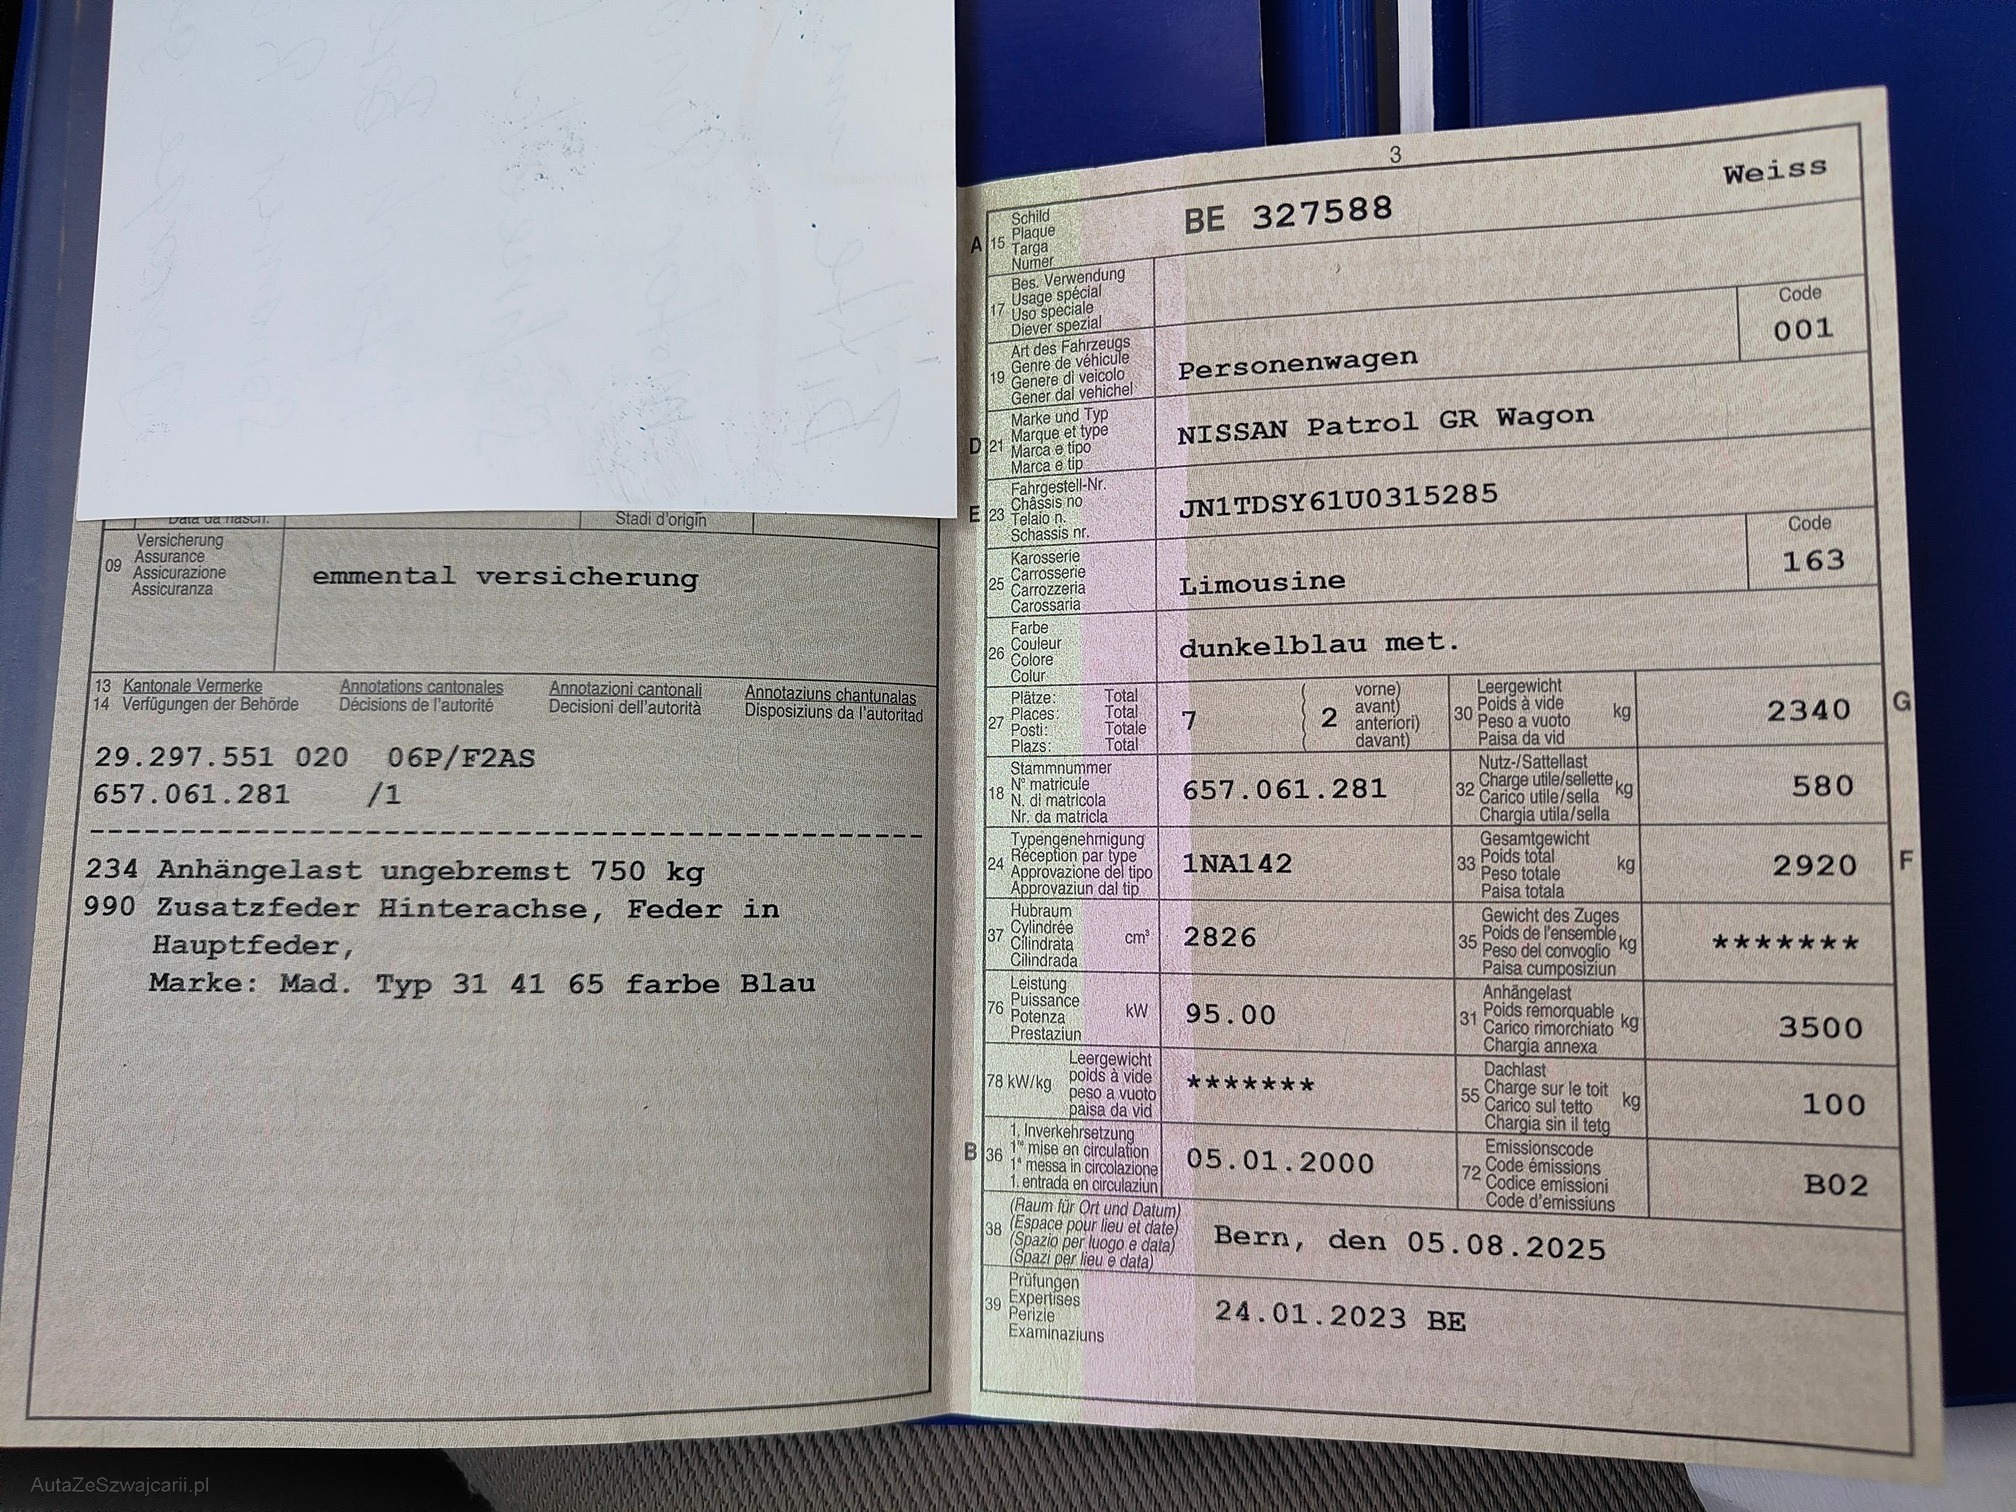 Stadi d'origin
09
Versicherung
Assurance
Assicurazione
Assicuranza
emmental versicherung
13 Kantonale Vermerke Annotations cantonales Annotazioni cantonali Annotaziuns chantunalas
14 Verfügungen der Behörde Décisions de l'autorité Decisioni dell'autorità Disposiziuns da l'autoritad
29.297.551 020 06P/F2AS
657.061.281 /1
234 Anhängelast ungebremst 750 kg
990 Zusatzfeder Hinterachse, Feder in
Hauptfeder,
Marke: Mad. Typ 31 41 65 farbe Blau
3
A 15
Schild
Plaque
Targa
Numer
BE 327588 Weiss
17
Bes. Verwendung
Usage spécial
Uso speciale
Diever spezial
19
Art des Fahrzeugs
Genre de véhicule
Genere di veicolo
Gener dal vehichel
Personenwagen
Code
001
D 21
Marke und Typ
Marque et type
Marca e tipo
Marca e tip
NISSAN Patrol GR Wagon
E 23
Fahrgestell-Nr.
Châssis no
Telaio n.
Schassis nr.
JN1TDSY61U0315285
25
Karosserie
Carrosserie
Carrozzeria
Carossaria
Limousine
Code
163
26
Farbe
Couleur
Colore
Colur
dunkelblau met.
27
Plätze: Total
Places: Total
Posti: Totale
Plazs: Total
7
2
vorne)
avant)
anteriori)
davant)
30
Leergewicht
Poids à vide
Peso a vuoto
Paisa da vid
kg
2340
G
18
Stammnummer
N° matricule
N. di matricola
Nr. da matricla
657.061.281
32
Nutz-/Sattellast
Charge utile/sellette
Carico utile/sella
Chargia utila/sella
kg
580
24
Typengenehmigung
Réception par type
Approvazione del tipo
Approvaziun dal tip
1NA142
33
Gesamtgewicht
Poids total
Peso totale
Paisa totala
kg
2920
F
37
Hubraum
Cylindrée
Cilindrata
Cilindrada
cm³
2826
35
Gewicht des Zuges
Poids de l'ensemble
Peso del convoglio
Paisa cumposiziun
kg
*******
76
Leistung
Puissance
Potenza
Prestaziun
kW
95.00
31
Anhängelast
Poids remorquable
Carico rimorchiato
Chargia annexa
kg
3500
78 kW/kg
Leergewicht
poids à vide
peso a vuoto
paisa da vid
*******
55
Dachlast
Charge sur le toit
Carico sul tetto
Chargia sin il tetg
kg
100
B 36
1. Inverkehrsetzung
1re mise en circulation
1a messa in circolazione
1. entrada en circulaziun
05.01.2000
72
Emissionscode
Code émissions
Codice emissioni
Code d'emissiuns
B02
38
(Raum für Ort und Datum)
(Espace pour lieu et date)
(Spazio per luogo e data)
(Spazi per lieu e data)
Bern, den 05.08.2025
39
Prüfungen
Expertises
Perizie
Examinaziuns
24.01.2023 BE
AutaZeSzwajcarii.pl